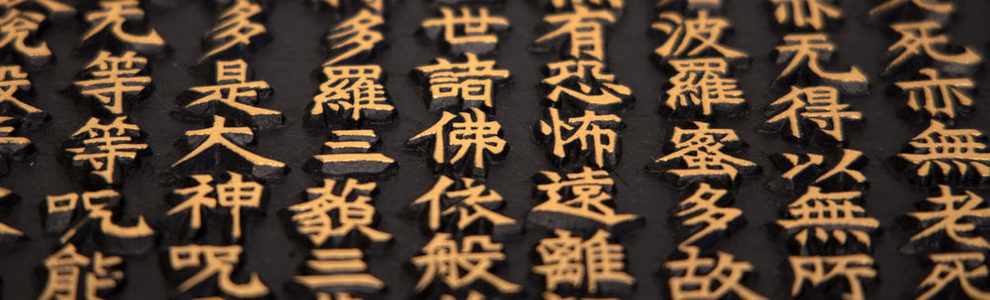 死亦無老死
亦无得以無所
波羅蜜多故
有恐怖遠離
世諸佛依般
多羅三藐三
多是大神呪
无等等呪能